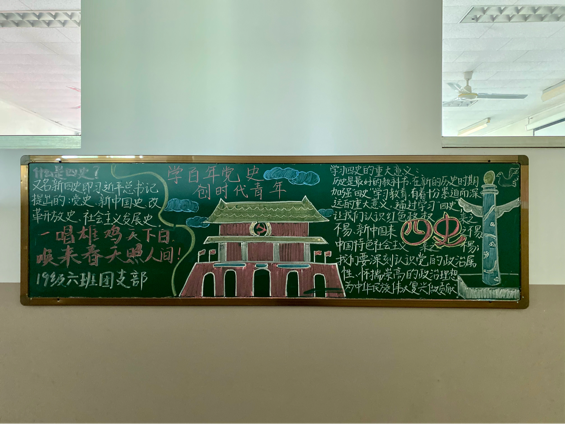 什么是四史?
又名新四史即习近平总书记
提出的:党史、新中国史、改
革开放史、社会主义发展史
一唱雄鸡天下白
唤来春天照人间!
19级六班团支部
学百年党史
创时代青年
学习四史的重大意义:
历史是最好的教科书,在新的历史时期
加强四史学习教育,有着十分重要而深
远的重大意义,通过学习四史
让我们认识红色政权
易,新中国来
中国特色社会主义
四史
我们要深刻认识党的政治属
性,怀揣崇高的政治理想
为中华民族伟大复兴做贡献